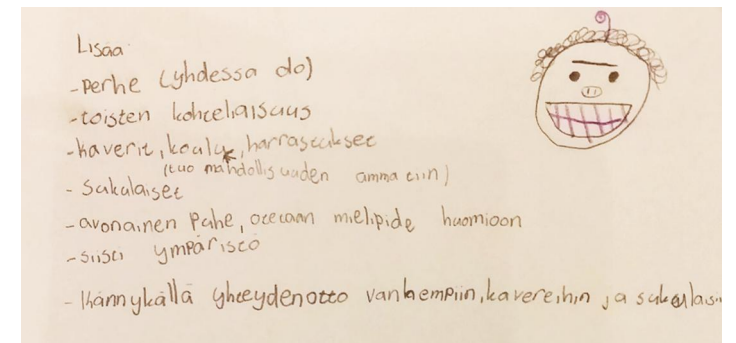 Lisää
-perhe (yhdessä do)
-toisten kohteliaisuus
-kaverit, koulu, harrastukset
(tuo mahdollisuuden ammattiin)
- Sukulaiset
-avonainen puhe, otetaan mielipide huomioon
-siisti ympäristö
- Kännykällä yhteydenotto vanhempiin, kavereihin ja sukulais